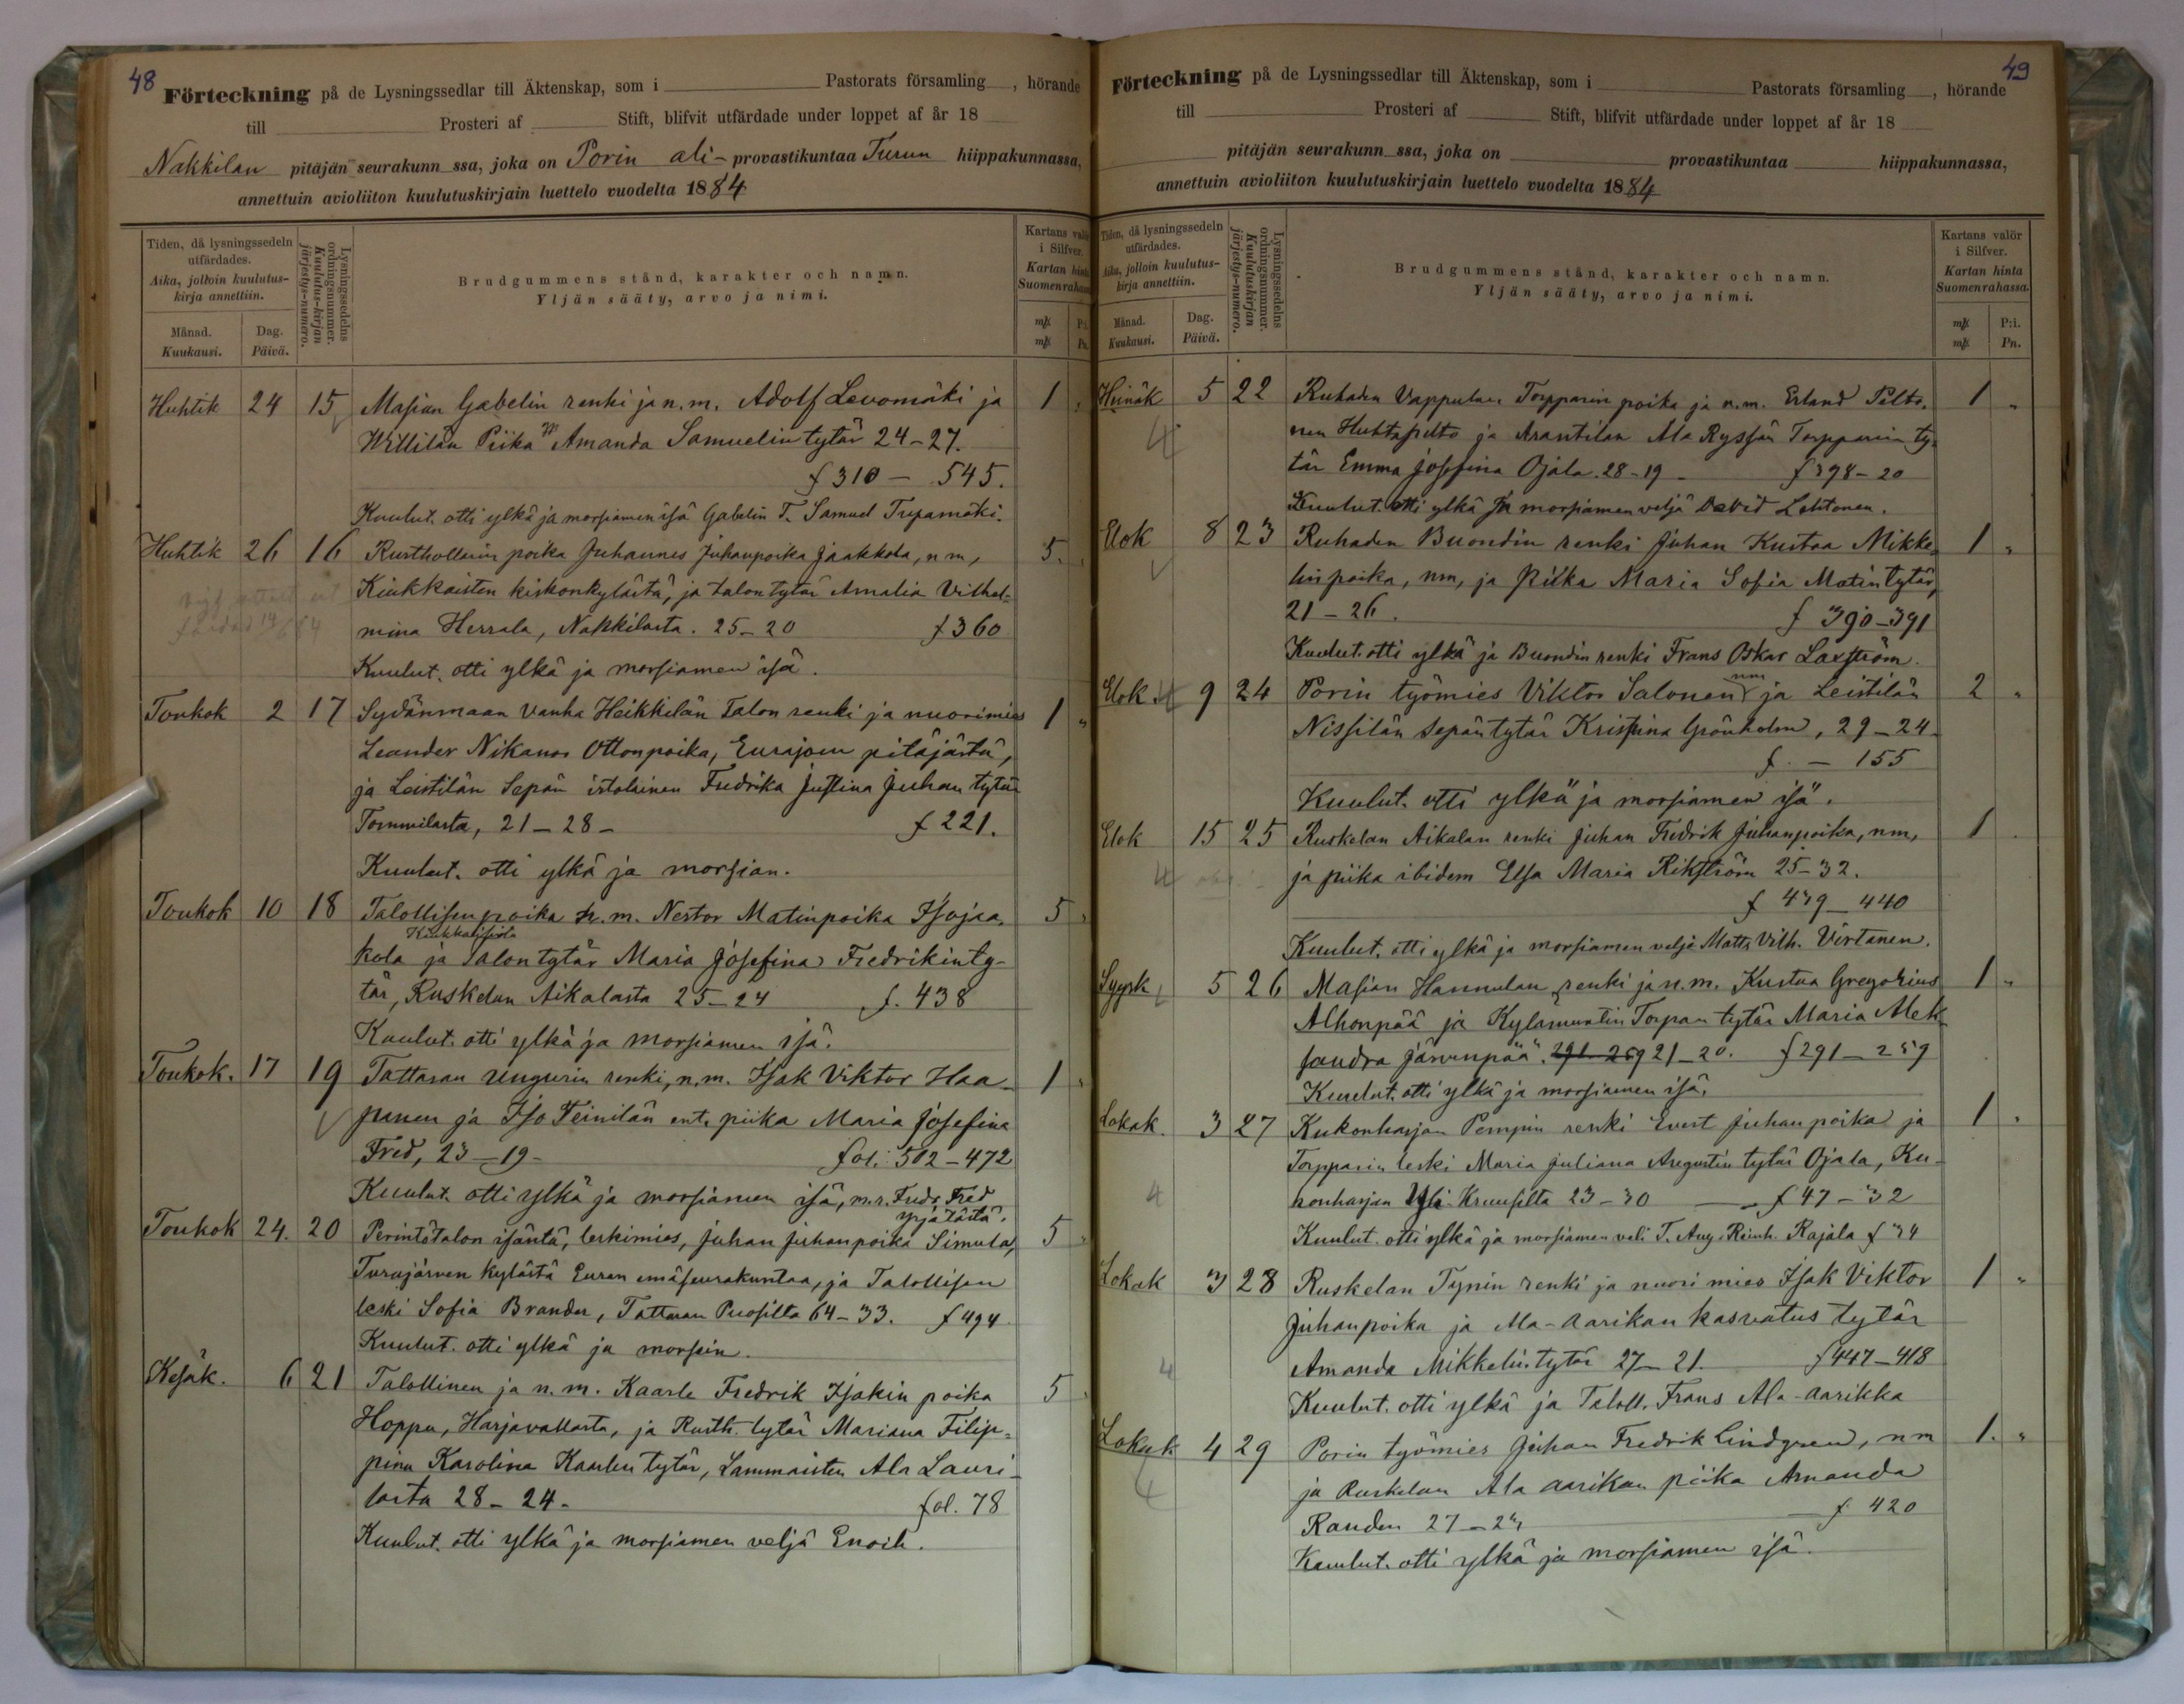 48
Förteckning på de Lysningssedlar till Äktenskap, som i Pastorats församling , hörande
till Prosteri af Stift, blifvit utfärdade under loppet af år 18
Nakkilan pitäjän seurakunn ssa, joka on Porin ali- provastikuntaa Turun hiippakunnassa,
annettuin avioliiton kuulutuskirjain luettelo vuodelta 1884
Tiden, då lysningssedeln utfärdades.
Aika, jolloin kuulutus-kirja annettiin.
Månad. Kuukausi.
Dag. Päivä.
Lysningssedelns ordningsnummer.
Kuulutus-kirjan järjestys-numero.
Brudgummens stånd, karakter och namn.
Yljän sääty, arvo ja nimi.
Kartans valör i Silfver.
Kartan hinta Suomenrahassa
Huhtik 24 15 Masian Gabelin renki ja n.m. Adolf Levomäki ja 1 „
Willilän Piika Amanda Samuelin tytär 24-27.
f 310 - 545.
Kuulut. otti ylkä ja morsiamen isä Gabelin T. Samuel Trepamäki.
Huhtik 26 16 Rusthollarin poika Juhannes Juhanpoika Jaakkola, n m, 5.
Kiukkaisten kirkonkylästä, ja talon tytär Amalia Vilhel-
mina Herrala, Nakkilasta. 25-20 f 360
Kuulut. otti ylkä ja morsiamen isä.
Toukok 2 17 Sydänmaan Vanha Heikkilän Talon renki ja nuorimies 1 „
Leander Nikanor Ottonpoika, Eurajoen pitäjästä,
ja Leistilän Sepän istolainen Fredrika Justina Juhan tytär
Tommilasta, 21-28- f 221.
Kuulut. otti ylkä ja morsian.
Toukok 10 18 Talollisen poika n.m. Nestor Matinpoika Isojaa, 5
Kiukkaisista
kola ja Talon tytär Maria Josefina Fredrikinty-
tär, Ruskelan Aikalasta 25-24 f. 438
Kuulut. otti ylkä ja morsiamen isä.
Toukok. 17 19 Tattaran Ungurin renki, n.m. Isak Viktor Haa- 1
panen ja Iso Teinilän ent. piika Maria Josefina
Fred, 23-19- fol. 502-472
Kuulut. otti ylkä ja morsiamen isä, m.r. Fredr Fred
Toukok 24. 20 Perintötalon isäntä, leskimies, Juhan Juhanpoika Simula, 5
Turajärven kylästä Euran emäseurakuntaa, ja Talollisen
leski Sofia Brander, Tattaran Puosilta 64-33. f 494
Kuulut. otti ylkä ja morsein.
Kesäk. 6 21 Talollinen ja n.m. Kaarle Fredrik Isakin poika 5
Hoppu, Harjavallasta, ja Rusth. tytär Mariana Filip-
pina Karolina Kaarlen tytär, Lammaisten Ala Lauri-
lasta 28-24- fol. 78
Kuulut. otti ylkä ja morsiamen veljä Enoch.
49
Förteckning på de Lysningssedlar till Äktenskap, som i Pastorats församling , hörande
till Prosteri af Stift, blifvit utfärdade under loppet af år 18
pitäjän seurakunn ssa, joka on provastikuntaa hiippakunnassa,
annettuin avioliiton kuulutuskirjain luettelo vuodelta 1884
Tiden, då lysningssedeln utfärdades.
Aika, jolloin kuulutus-kirja annettiin.
Månad. Kuukausi.
Dag. Päivä.
Lysningssedelns ordningsnummer.
Kuulutuskirjan järjestys-numero.
Brudgummens stånd, karakter och namn.
Yljän sääty, arvo ja nimi.
Kartans valör i Silfver.
Kartan hinta Suomenrahassa.
mk P:i.
mk Pn.
Heinäk 5 22 Ruhaden Vappulan Torpparin poika ja n.m. Erland Pelto- 1 „
nen Huhtapelto ja Arantilan Ala Ryssän Torpparin ty-
tär Emma Josefina Ojala. 28-19 - f 398-20
Kuulut. otti ylkä ja morsiamen veljä David Lehtonen.
Elok 8 23 Ruhaden Buondin renki Juhan Kustaa Mikke- 1 „
lin poika, nm, ja Piika Maria Sofia Matintytär,
21-26. f 390-391
Kuulut. otti ylkä ja Buondin renki Frans Oskar Laxström.
Elok 9 24 Porin työmies Viktor Salonen nm ja Leistilän 2 „
Nissilän sepäntytär Kristina Grönholm, 29-24-
f. - 155
Kuulut. otti ylkä ja morsiamen isä.
Elok 15 25 Ruskelan Aikalan renki Juhan Fredrik Juhanpoika, nm, 1
ja piika ibidem Elsa Maria Rikström 25-32.
f 439-440
Kuulut. otti ylkä ja morsiamen veljä Matts Vilh. Virtanen.
Syysk 5 26 Masian Hannulan renki ja n.m. Kustaa Gregorius 1 „
Alhonpää ja Kylamuntin Torpan tytär Maria Alek-
sandra Järvenpää. 291-259 21-20. f 291-259
Kuulut. otti ylkä ja morsiamen isä.
Lokak. 3 27 Kukonharjan Pempin renki Evert Juhanpoika ja 1 „
Torpparin leski Maria Juliana Augustin tytär Ojala, Ku-
konharjan Yli-Kruusilta 23-30 - f 47-32
Kuulut. otti ylkä ja morsiamen veli T. Aug. Reinh. Rajala f 34
Lokak 3 28 Ruskelan Tynin renki ja nuori mies Isak Viktor 1 „
Juhanpoika ja Ala-aarikan kasvatus tytär
Amanda Mikkelin tytär 27-21. f 447-418
Kuulut. otti ylkä ja Taloll. Frans Ala-aarikka
Lokak 4 29 Porin työmies Juhan Fredrik Lindgren, nm 1. „
ja Ruskelan Ala aarikan piika Amanda
Randen 27-24 f 420
Kuulut. otti ylkä ja morsiamen isä.